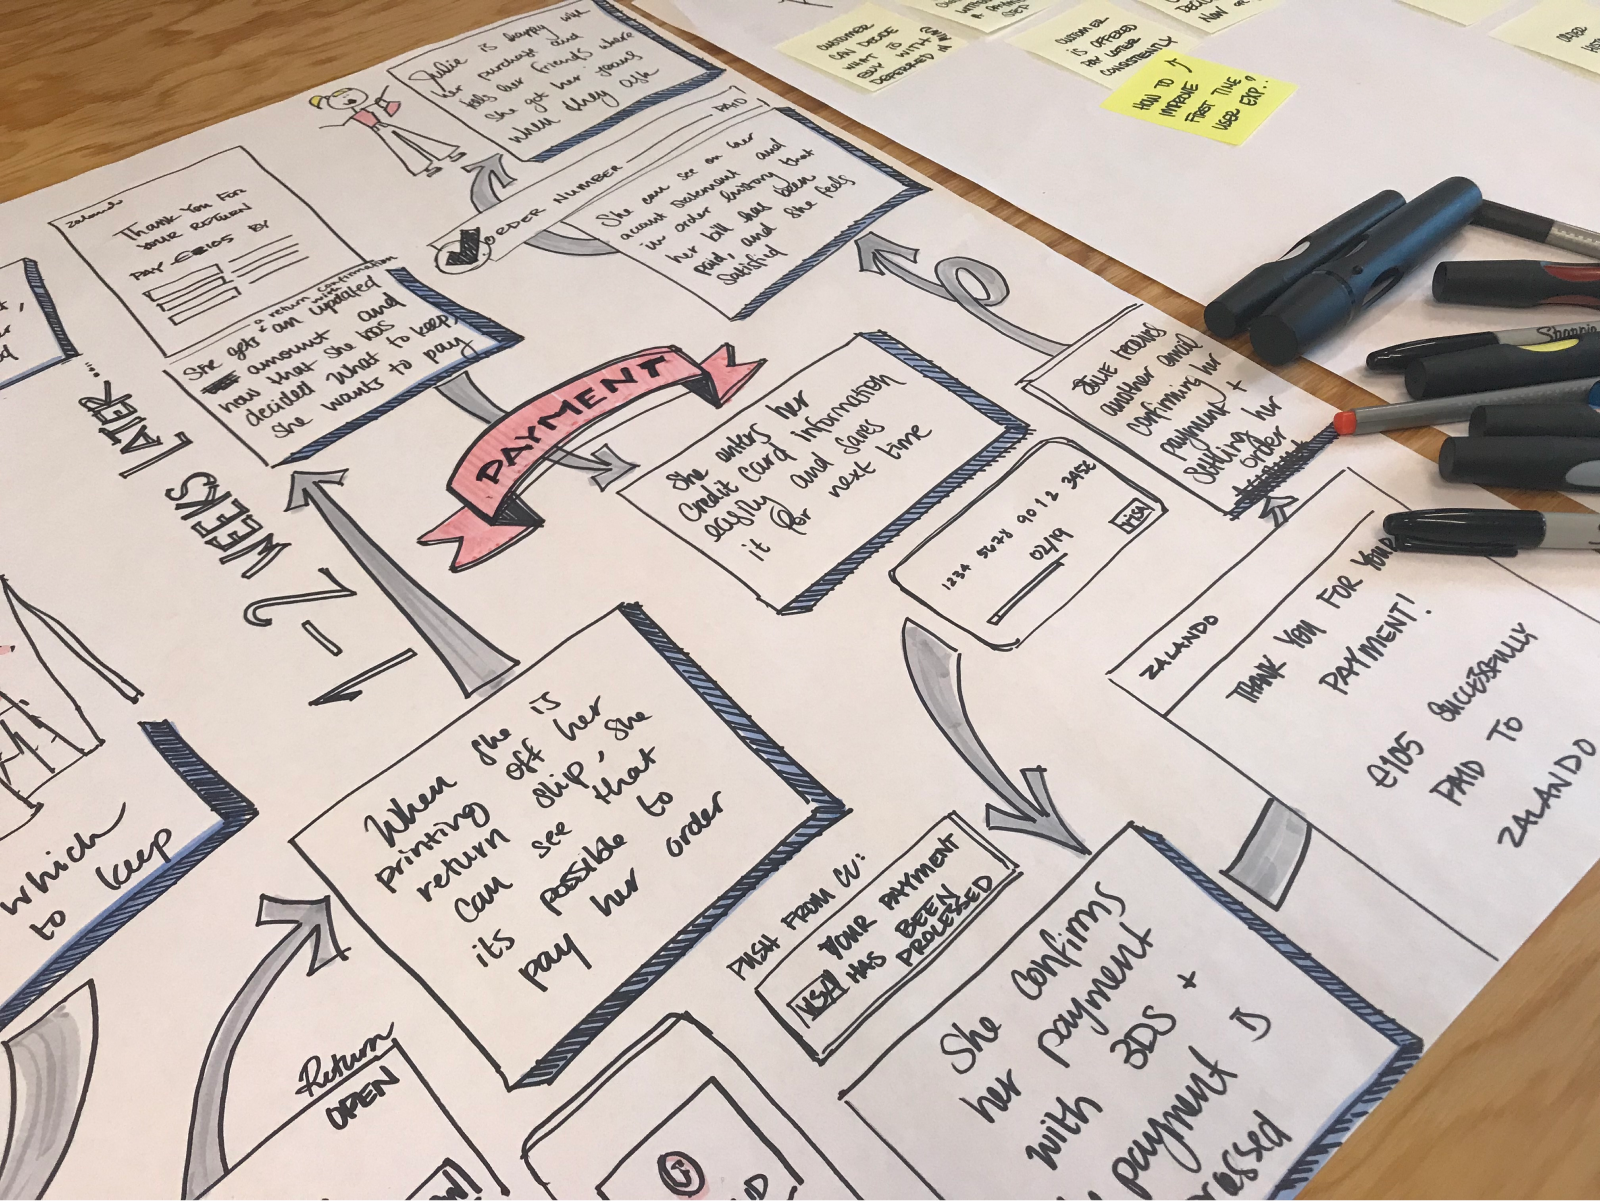 Julie is happy with
her purchase and
tells her friends where
she got her jeans
when they ask
CUSTOMER
CAN DECIDE
WHAT TO
BUY WITH
DEFERRED
A PAYMENT
STEP
CUSTOMER
IS OFFERED
PAY LATER
CONSISTENTLY
NOW
HOW TO
IMPROVE
FIRST TIME
USER EXP.
USER
Zalando
THANK YOU FOR
YOUR RETURN
PAY £105 BY
She gets a return confirmation
with an updated
amount and
now that she has
decided what to keep,
she wants to pay
ORDER NUMBER
PAID
She can see on her
account statement and
in order history that
her bill has been
paid, and she feels
satisfied
1-2 WEEKS LATER...
PAYMENT
She enters her
credit card information
easily and saves
it for next time
1234 5678 9012 3456
02/19
VISA
Julie receives
another email
confirming her
payment +
settling her
order
ZALANDO
THANK YOU FOR YOUR
PAYMENT!
£105 SUCCESSFULLY
PAID TO
ZALANDO
When she is
printing off her
return slip, she
can see that
its possible to
pay her order
which
to keep
PUSH FROM CC:
YOUR PAYMENT
VISA HAS BEEN
PROCESSED
She confirms
her payment
with 3DS +
payment is
Return
OPEN
Sharpie